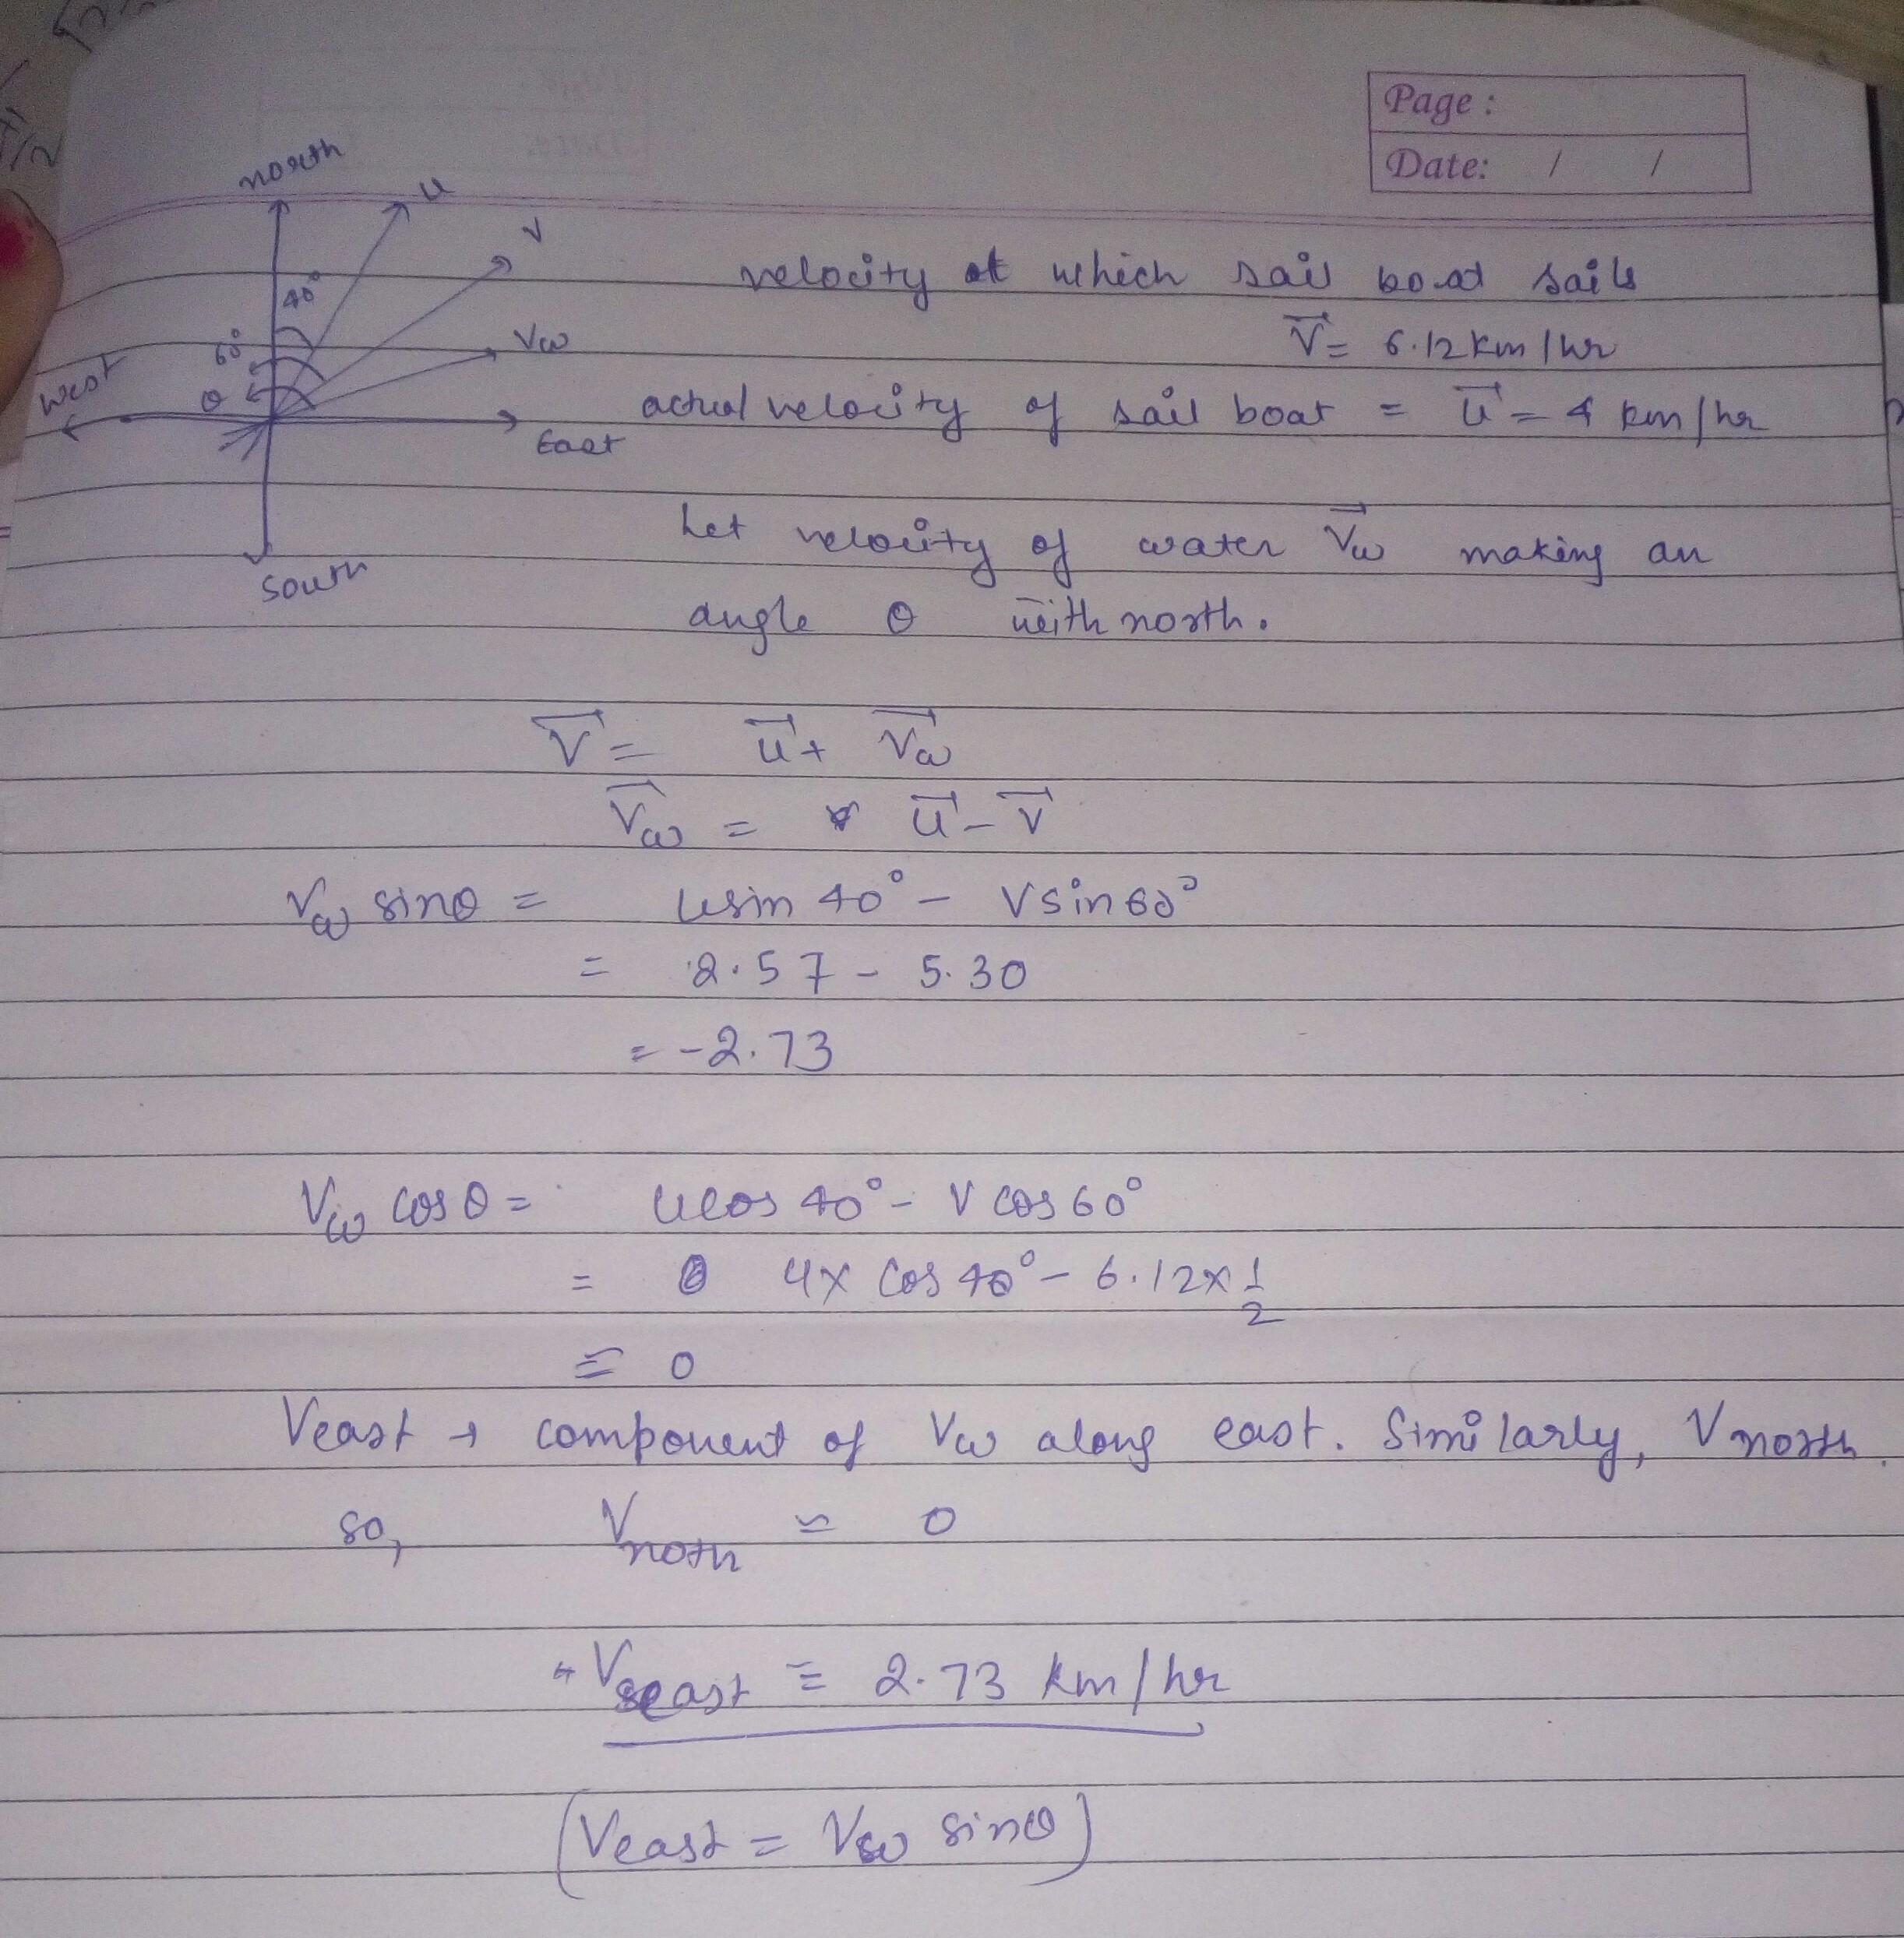 Page :
Date: / /
north
u
V
40°
60°
Vω
West
θ
East
South
velocity at which sail boat sails
V⃗ = 6.12 km/hr
actual velocity of sail boat = u⃗ = 4 km/hr
Let velocity of water V⃗ω making an
angle θ with north.
V⃗ = u⃗ + V⃗ω
V⃗ω = u⃗ - V⃗
Vω sinθ = usin 40° - Vsin60°
= 2.57 - 5.30
= -2.73
Vω cosθ = ucos 40° - V cos 60°
= 4x cos 40° - 6.12 x 1/2
≅ 0
Veast → component of Vω along east. Similarly, Vnorth.
so, Vnoth ≈ 0
Veast = 2.73 km/hr
(Veast = Vω sinθ)